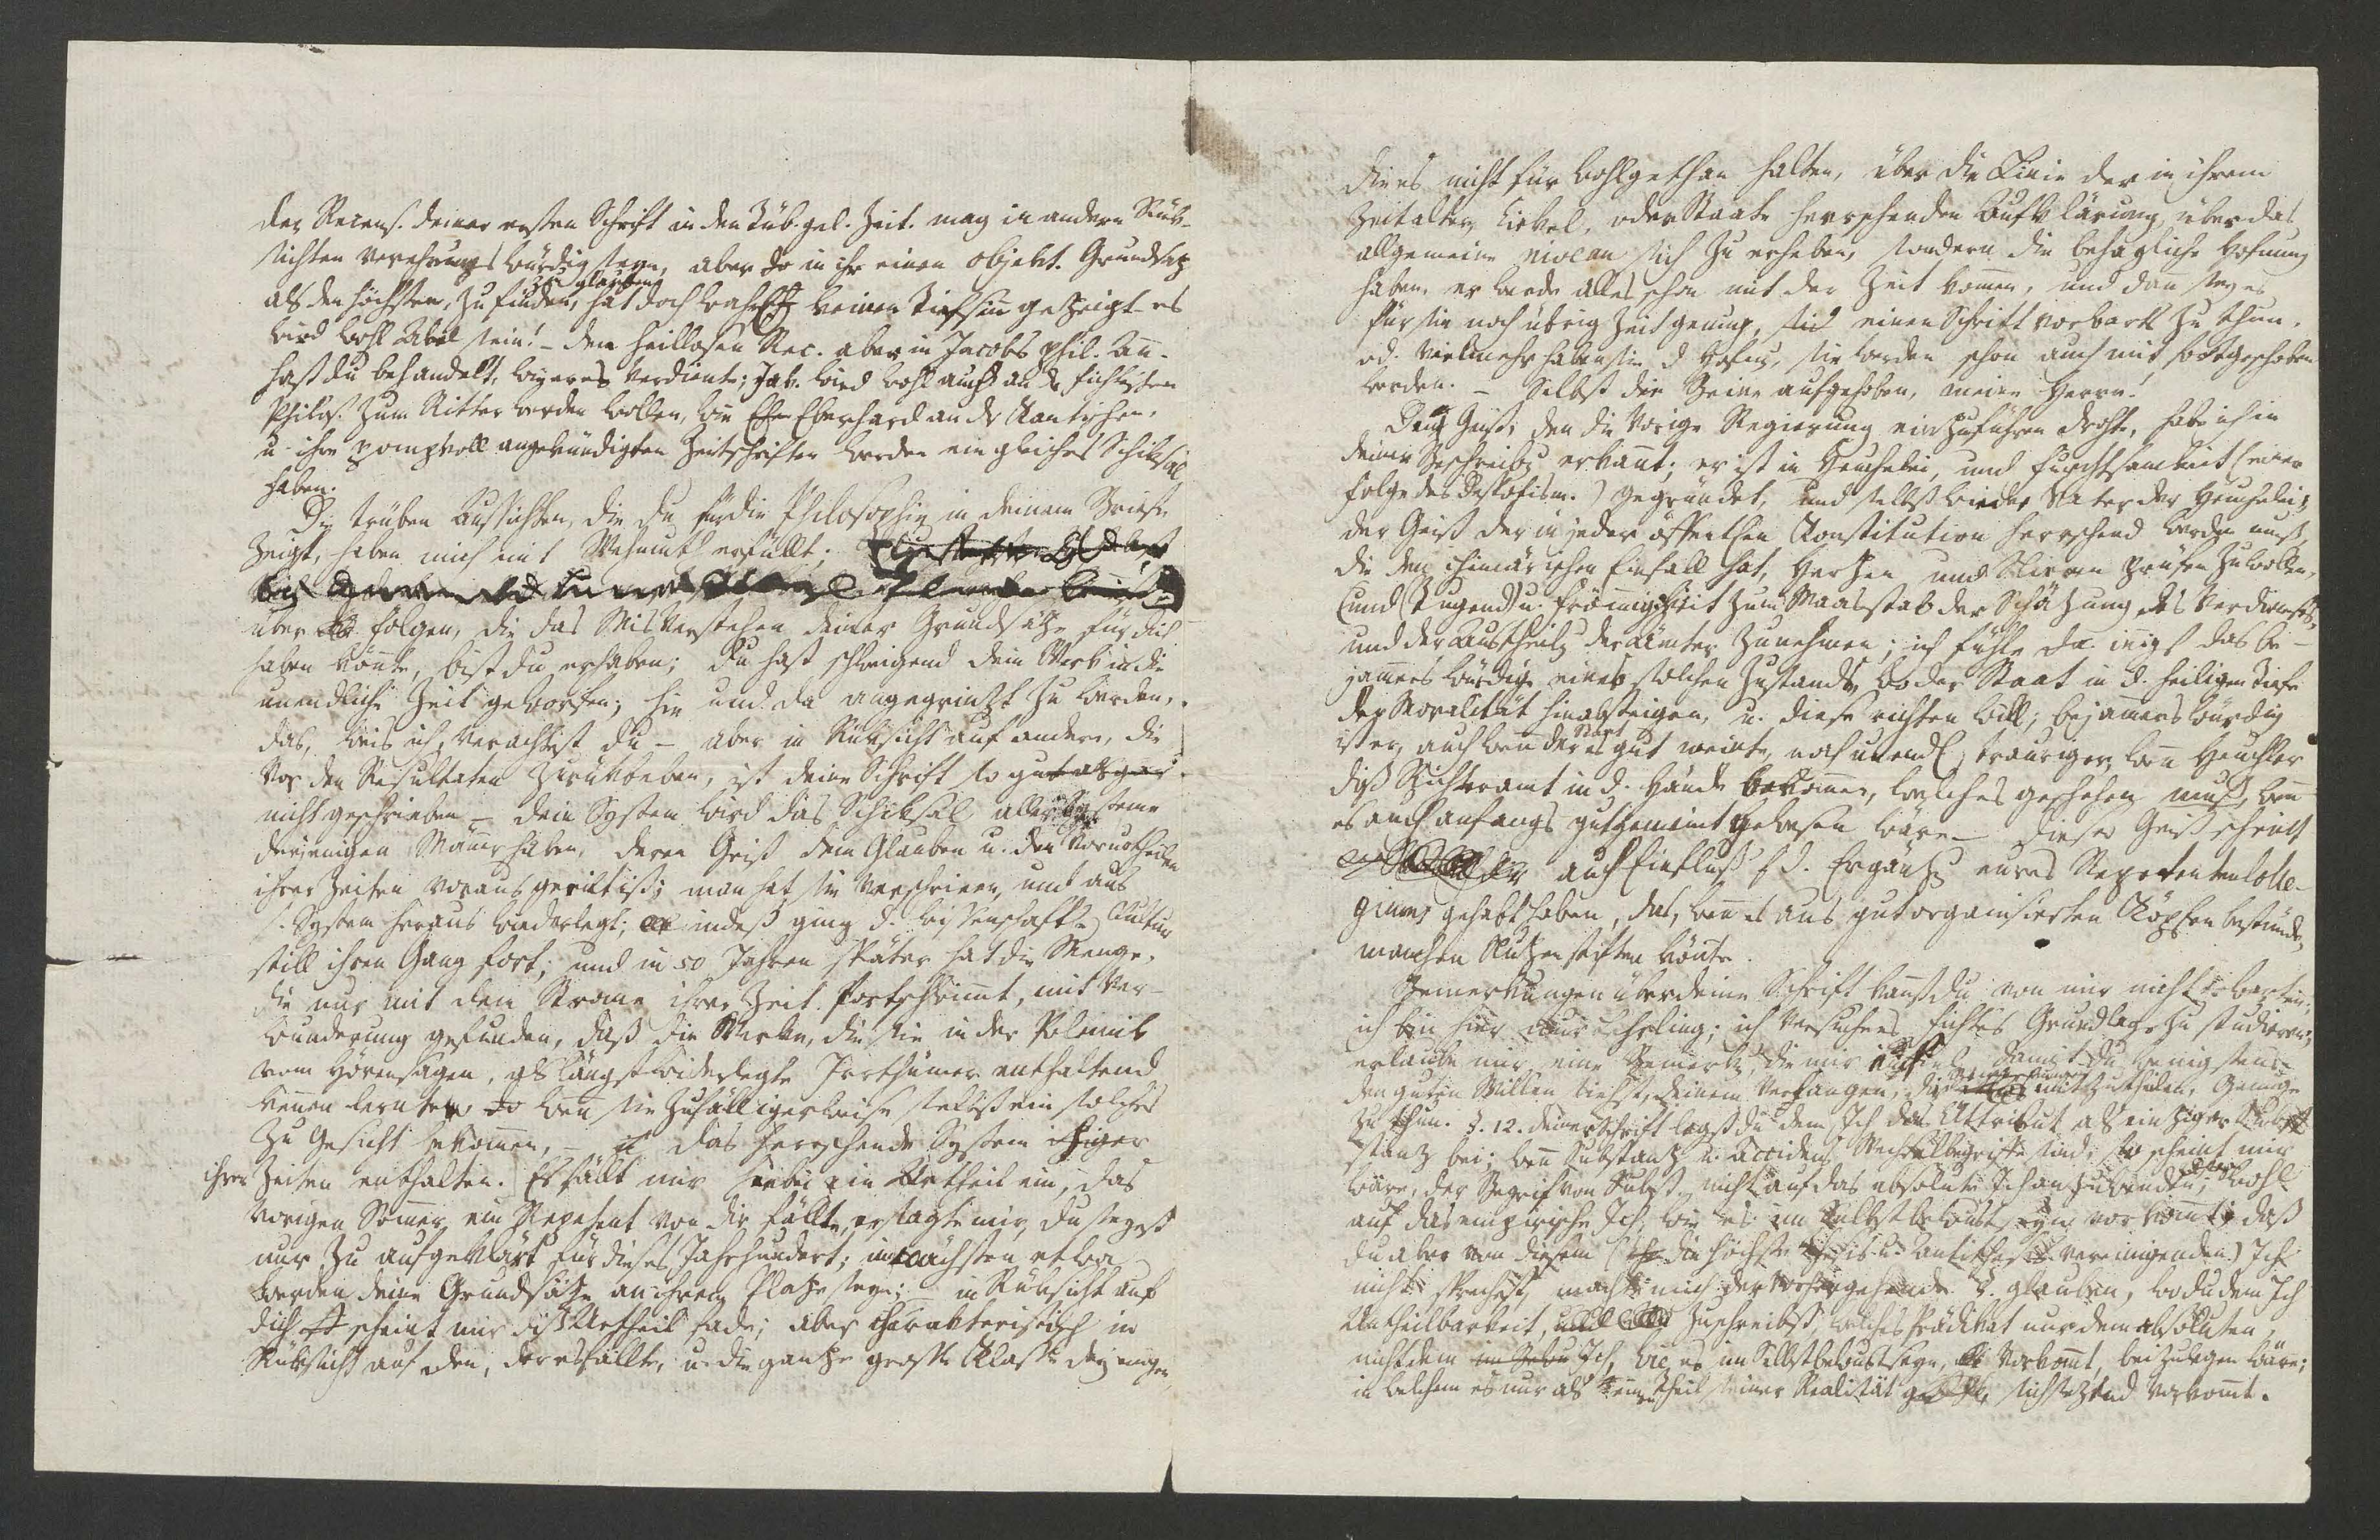 der Recens. deiner ersten Schrift in den Tüb. gel. Zeit. mag in andern Rük-
sichten verehrungswürdig seyn, aber in ihr einen objekt. Grundsaz
als den höchsten, zu finden zu glauben, hat doch wahrl. keinen Tiefsinn gezeigt – es
wird wohl Abel sein! – den heillosen Rec. aber in Jacobs phil. Ann.
hast du behandelt, wie er es verdiente; Jak. wird wohl auch an der fichtischen
Philos. zum Ritter werden wollen, wie Eberhard an der Kantischen,
u. ihre pompvoll angekündigten Zeitschriften werden ein gleiches Schiksal
haben.
Die trüben Aussichten, die du für die Philosophie in deinem Briefe
zeigst, haben mich mit Wehmuth erfüllt;
über die Folgen, die das Misverstehen deiner Grundsätze für dich
haben könnte, bist du erhaben; du hast schweigend dein Werk in die
unendliche Zeit geworfen; hie und da angegrinzt zu werden,
das, weis ich, verachtest du – aber in Rüksicht auf andere, die
vor den Resultaten zurükbeben, ist deine Schrift so gut als gar
nicht geschrieben – dein System wird das Schiksal aller Systeme
derjenigen Männer haben, deren Geist dem Glauben u. den Vorurtheilen
ihrer Zeiten vorausgeeilt ist; man hat sie verschrieen, und aus
s. System heraus widerlegt; indeß ging d. wissenschaftl. Cultur
still ihren Gang fort; und in 50 Jahren später hat die Menge,
die nur mit dem Strome ihrer Zeit fortschwimmt, mit Ver-
wunderung gefunden, daß die Werke, die sie in der Polemik
vom Hörensagen, als längst widerlegte Irrthümer enthaltend
kennen lernte, wenn sie zufälligerweise selbst ein solches
zu Gesicht bekommen, – das herrschende System
ihrer Zeiten enthalten. Es fällt mir hiebei ein Urtheil ein, das
vorigen Sommer ein Repetent von dir fällte, er sagte mir, du seyest
nur zu aufgeklärt für dieses Jahrhundert; im nächsten etwa
werden deine Grundsätze an ihrem Platze seyn; – in Rüksicht auf
dich scheint mir diß Urtheil fade; aber charakteristisch in
Rüksicht auf den, der es fällte, u. die ganze grosse Klasse derjenigen,
die es nicht für wohlgethan halten, über die Linie der in ihrem
Zeitalter, Zirkel, oder Staate herrschenden Aufklärung, über das
allgemeine niveau sich zu erheben, sondern die behagliche Hofnung
haben, es werde alles schon mit der Zeit kommen, und dann sey es
für sie noch übrig Zeit genung, einen Schritt vorwärts zu thun,
od. vielmehr haben sie d Hofng, sie werden schon auch mit fortgeschoben
werden. – Selbst die Beine aufgehoben, meine Herrn!
Den Geist, den die vorige Regierung einzuführen drohte, habe ich in
deiner Beschreibg erkannt; er ist in Heuchelei, und Furchtsamkeit (einer
Folge des Despotism.) gegründet, und selbst wieder Vater der Heuchelei;
der Geist der in jeder öffentlichen Konstitution herrschend werden muß,
die den chimärischen Einfall hat, Herzen und Nieren prüfen zu wollen,
und (Tugend) u. Frömmigkeit zum Maasstab der Schäzung des Verdiensts,
und der Austheilg der Ämter zu nehmen; ich fühle innigst das be-
jammernswürdige eines solchen Zustands, wo der Staat in d. heiligen Tiefe
der Moralität hinabsteigen, u. diese richten will; bejammernswürdig
ist er, auch wenn der Staat es gut meinte, noch unendl. trauriger, wenn Heuchler
diß Richteramt in d. Hände bekommen, welches geschehen muß, wenn
es auch anfangs gutgemeint gewesen wäre – dieser Geist scheint
auch Einfluß f d. Ergänzg eures Repetentencolle-
giums gehabt haben, das, wenn es aus gut organisierten Köpfen bestünde,
manchen Nutzen stiften könnte.
Bemerkungen über deine Schrift kannst du von mir nicht erwarten;
ich bin hier nur Lehrling; ich versuche es, Fichtes Grundlage zu studieren;
erlaube mir eine Bemerkg, die mir einfiel, damit du wenigstens
den guten Willen siehst, deinem Verlangen, dir Bemerkungen mitzutheilen, Genüge
zu thun. §. 12. deiner Schrift legst du dem Ich das Attribut als einziger Sub-
stanz bei; wenn Substanz u. Accidens Wechselbegriffe sind, so scheint mir
wäre, der Begrif von Subst. nicht auf das absolute Ich anzuwenden; wohl
auf das empirische Ich, wie es im Selbstbewustseyn vorkommt; daß
du aber von diesem (die höchste Thesis u. Antithese vereinigenden) Ich
nicht sprechest, machte mich der vorhergehende §. glauben, wo du dem Ich
Untheilbarkeit, zuschreibst, welches Prädikat nur dem absoluten,
nicht dem Ich, wie es im Selbstbewustseyn, vorkommt, beizulegen wäre;
in welchem es nur als einen Theil seiner Realität sich sezend vorkommt.